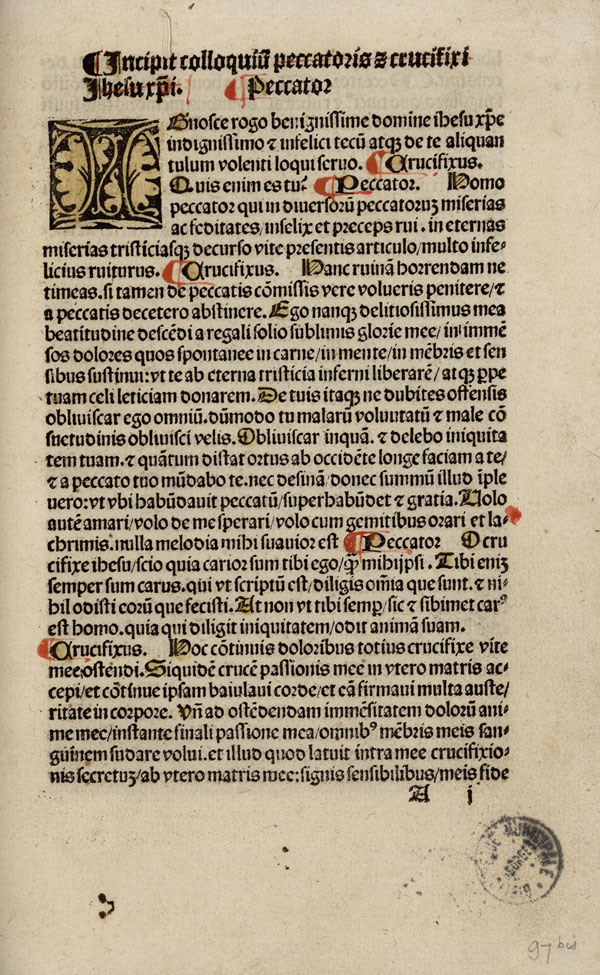 ¶ Incipit colloquiū peccatoris ⁊ crucifixi
Ihesu xp̄i. ¶ Peccator
IGnosce rogo benignissime domine ihesu xp̄e
indignissimo ⁊ infelici tecū atqꝫ de te aliquan
tulum volenti loqui seruo. ¶ Crucifixus.
Quis enim es tu? ¶ Peccator. Homo
peccator qui in diuersorū peccatoruꝫ miserias
ac feditates/infelix et preceps rui. in eternas
miserias tristiciasqꝫ decurso vite presentis articulo/multo infe-
licius ruiturus. ¶ Crucifixus. Hanc ruinā horrendam ne
timeas. si tamen de peccatis cōmissis vere volueris penitere/⁊
a peccatis decetero abstinere. Ego nanqꝫ delitiosissimus mea
beatitudine descēdi a regali solio sublimis glorie mee/in immē
sos dolores quos spontanee in carne/in mente/in mēbris et sen
sibus sustinui: vt te ab eterna tristicia inferni liberarē/atqꝫ ꝑpe
tuam celi leticiam donarem. De tuis itaqꝫ ne dubites offensis
obliuiscar ego omniū. dūmodo tu malarū voluntatū ⁊ male cō
suetudinis obliuisci velis. Obliuiscar inquā. ⁊ delebo iniquita
tem tuam. ⁊ quātum distat ortus ab occidēte longe faciam a te/
⁊ a peccato tuo mūdabo te. nec desinā/donec summū illud īple
uero: vt vbi habūdauit peccatū/superhabūdet ⁊ gratia. Uolo
autē amari/volo de me sperari/volo cum gemitibus orari et la-
chrimis. nulla melodia mihi suauior est ¶ Peccator O cru
cifixe ihesu/scio quia carior sum tibi ego/ꝙ̄ mihijpsi. Tibi eniꝫ
semper sum carus. qui vt scriptū est/diligis oīa que sunt. ⁊ ni-
hil odisti eorū que fecisti. At non vt tibi semꝑ/sic ⁊ sibimet carꝰ
est homo. quia qui diligit iniquitatem/odit animā suam.
¶ Crucifixus. Hoc cōtinuis doloribus totius crucifixe vite
mee/ostendi. Siquidē crucē passionis mee in vtero matris ac-
cepi/et cōtinue ipsam baiulaui corde/et eā firmaui multa auste/
ritate in corpore. Vn̄ ad ostēdendam immēsitatem dolorū ani-
me mee/instante finali passione mea/omnibꝰ mēbris meis san-
guinem sudare volui. et illud quod latuit intra mee crucifixio-
nis secretuꝫ/ab vtero matris mee: signis sensibilibus/meis fide
A j
97 bis